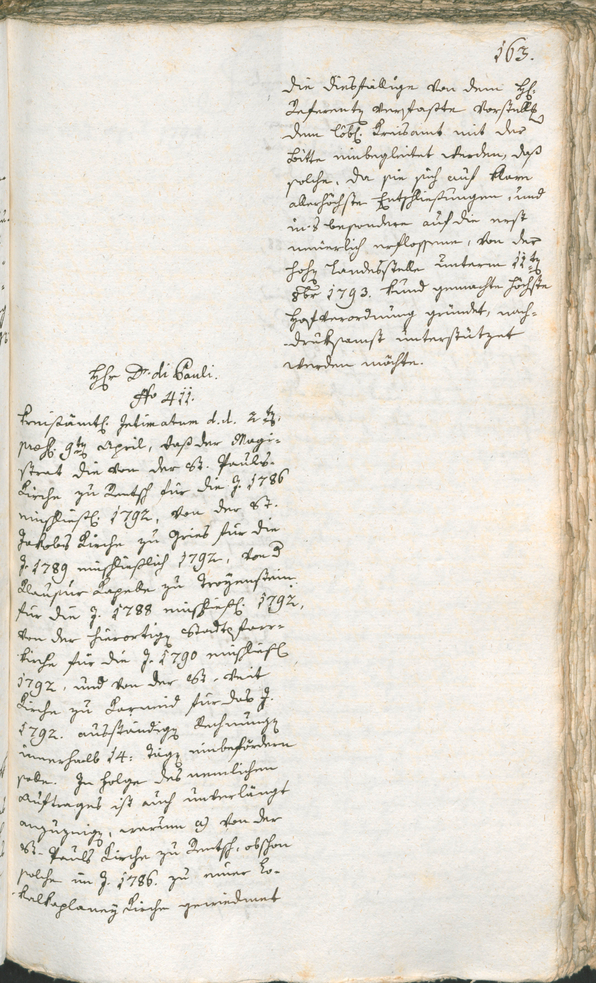 163.
die diesfällige von dem H.
Referenten verfaßte Vorstellung
dem löbl. Kreisamt mit der
Bitte einbegleitet werden, daß
solche, da sie sich auf klare
allerhöchste Entschließungen, und
ins besondere auf die erst
neuerlich erflossene, von der
hohen Landesstelle unterm 11ten
8br 1793. kund gemachte höchste
Hofverordnung gründet, nach-
drüksamst unterstützet
werden möchte.
Hr. Dr. di Pauli.
No 411.
Kreisämtl. Intimatum d.d. 2ten
pres. 9ten April, daß der Magi-
strat die von der St. Pauls-
Kirche zu Rentsch für die J. 1786
einschließl. 1792, von der St.
Jakobs Kirche zu Gries für die
J. 1789 einschließlich 1792, von der
Klausur Kapelle zu Troyenstein
für die J. 1788 einschließl. 1792,
von der hierortigen Stadtpfarr-
kirche für die J. 1790 einschließl.
1792, und von der St. Veit
Kirche zu Karneid für das J.
1792. ausständigen Rechnungen
innerhalb 14: Tagen einbefördern
solle. In Folge des nemlichen
Auftrages ist auch unverlängt
anzuzeigen, warum a) von der
St. Pauls Kirche zu Rentsch, obschon
solche im J. 1786. zu einer Lo-
kalkaplaney Kirche gewiedmet